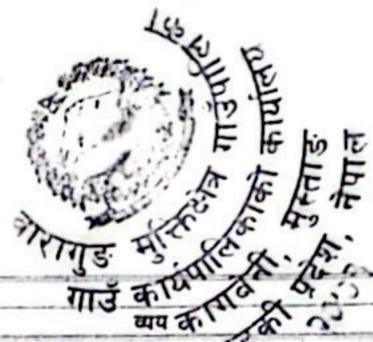 वारागुङ मुक्तिक्षेत्र गाउँपालिका
गाउँ कार्यपालिकाको कार्यालय
कागवेनी, मुस्ताङ
प्रदेश, नेपाल
व्यय